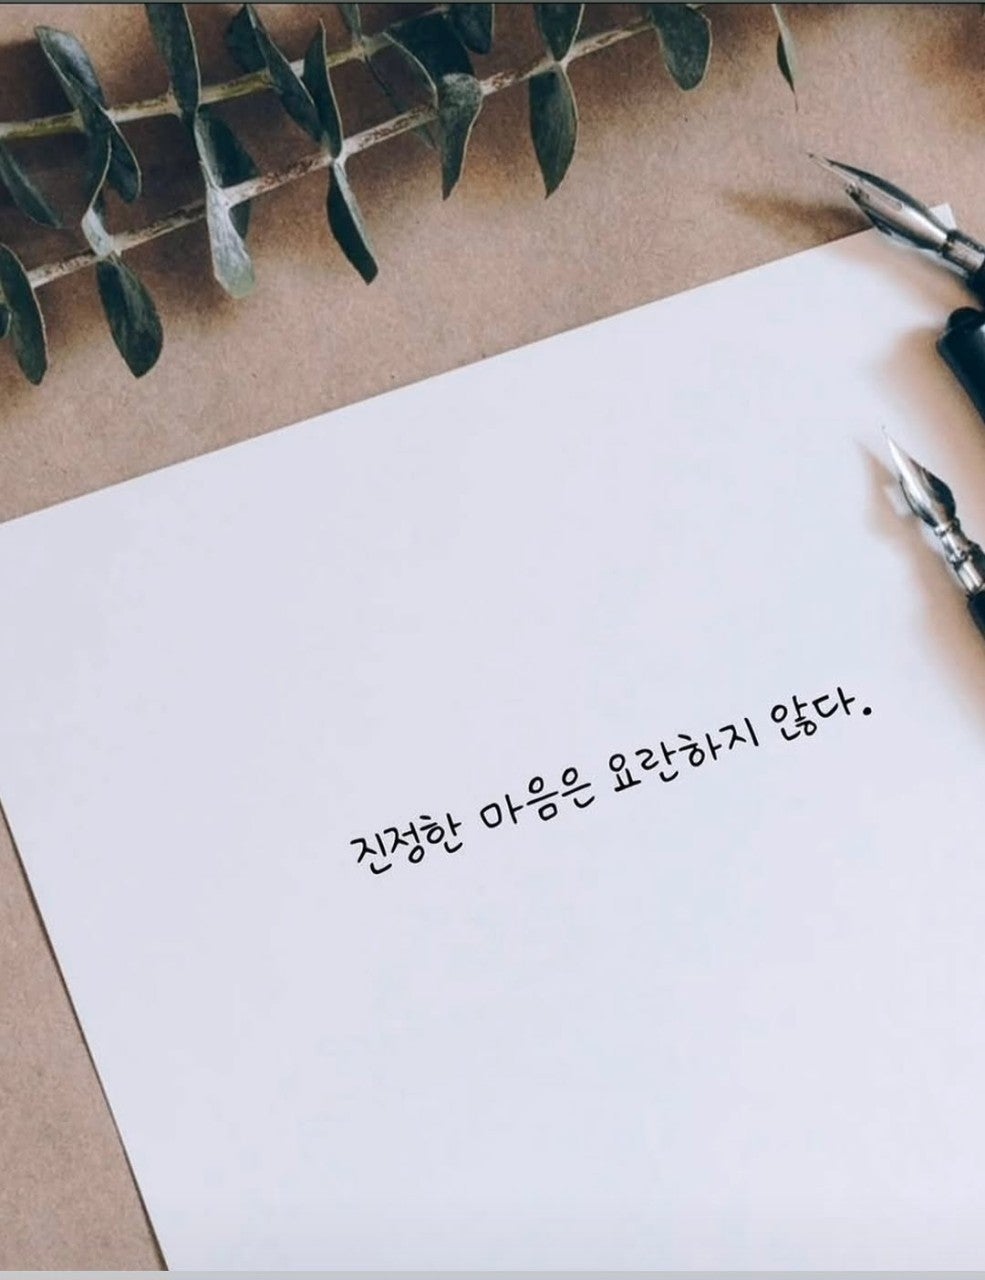 진정한 마음은 요란하지 않다.